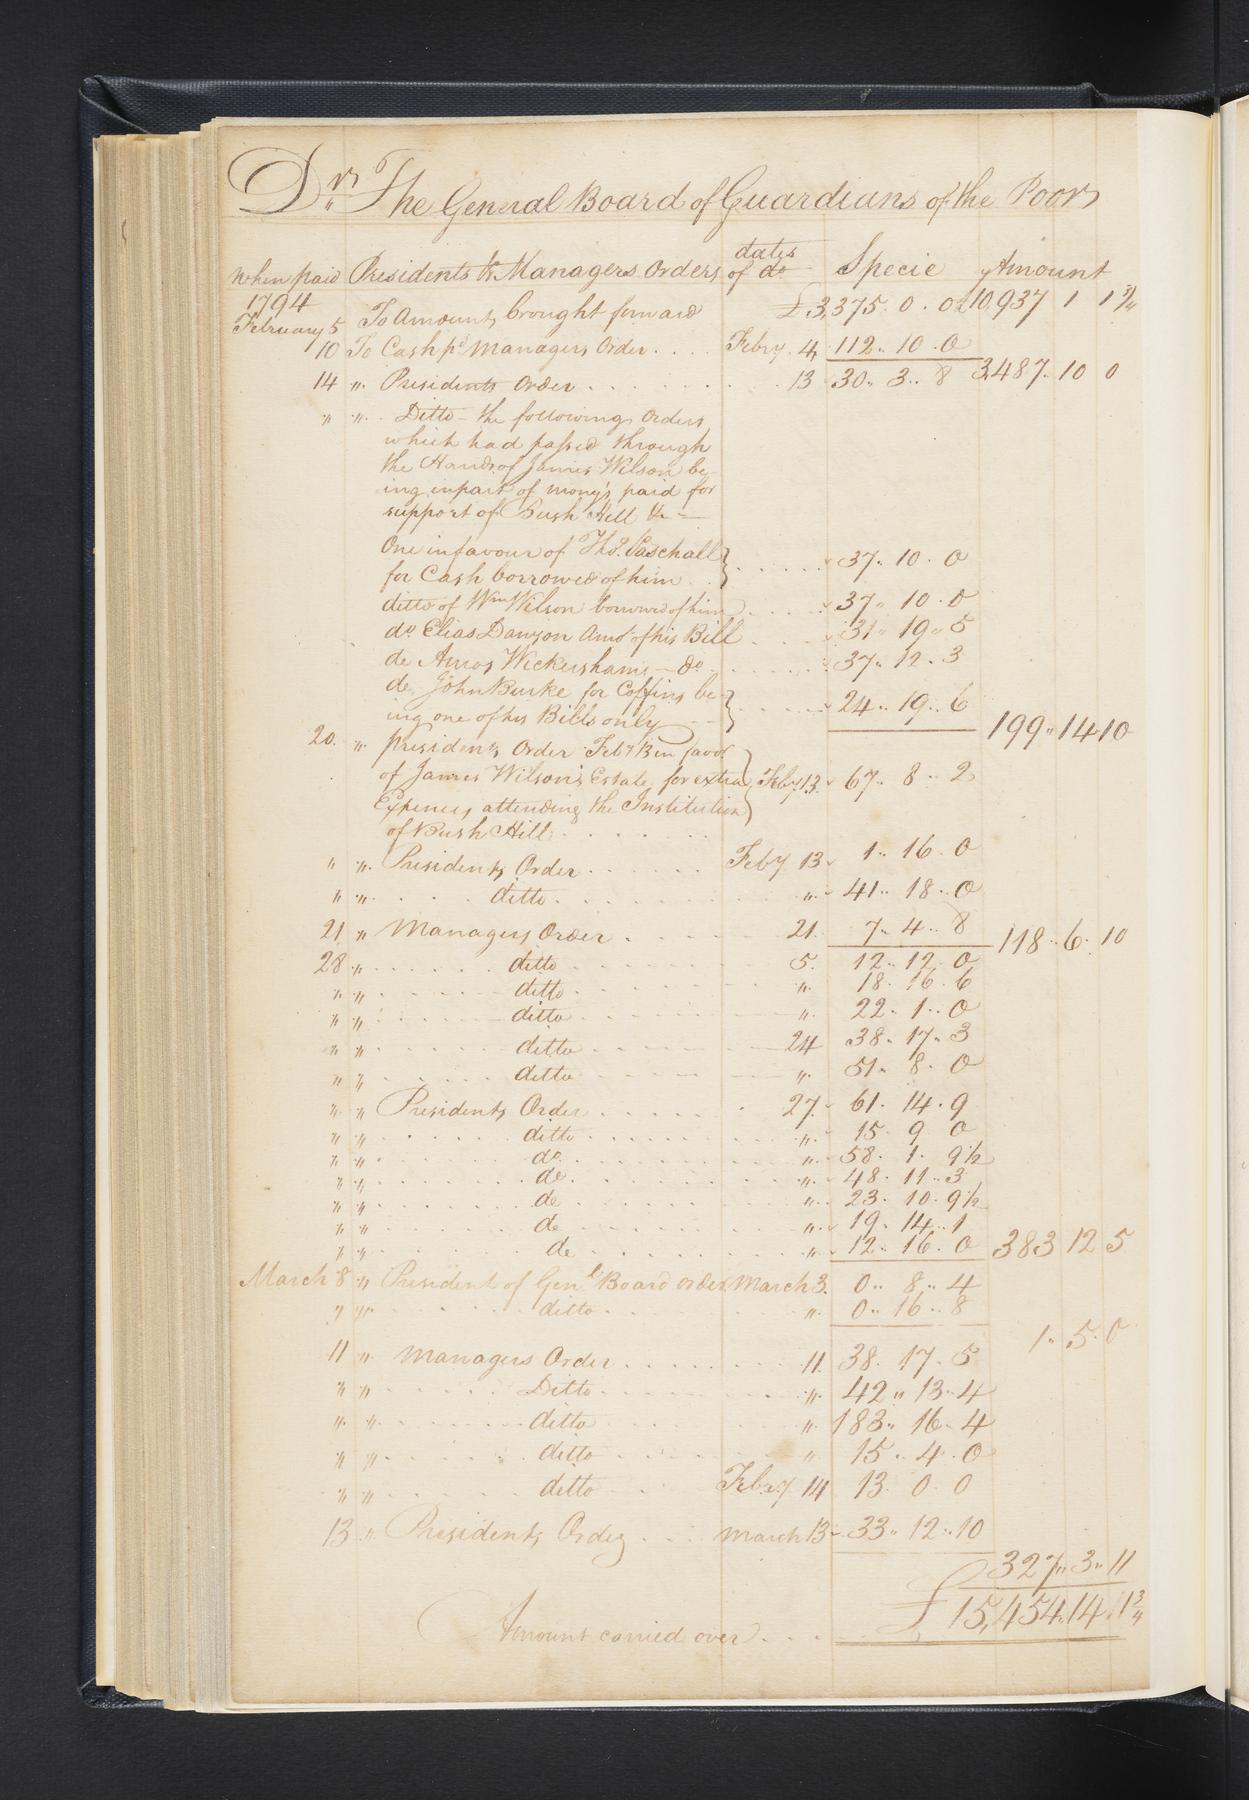 Dr. The General Board of Guardians of the Poor
when paid Presidents & Managers Orders dates of do Specie Amount
1794
February 5 To Amount, brought forward £3,375. 0. 0 £10,937 1 1 3/4
10 To Cash pd Managers Order .... Febry. 4, 112.. 10. 0
3,487. 10 0
14 " Presidents Order ........ 13 30.. 3.. 8
" " Ditto - the following Orders
which had passed through
the Hands of James Wilson be-
ing in part of mony's paid for
support of Bush Hill &c —
One in favour of Thos. Paschall
for Cash borrowed of him .. } ...... 37.. 10. 0
ditto of Wm Wilson borrowed of him ..... 37.. 10. 0
do. Elias Danyon Amot of his Bill .... 31.. 19.. 5
do Amos Wickersham — do ...... 37.. 12. 3
do John Burke for Coffins be-
ing one of his Bills only } ..... 24.. 19.. 6 199.. 14 10
20. " Presidents Order Feby 13 in favor
of James Wilson's Estate, for extra } Feby. 13. 67.. 8.. 2
Expences, attending the Institution
of Bush Hill .......
" " Presidents Order ...... Feby 13 1.. 16. 0
" " .... ditto ........ " 41.. 18.. 0
21 " Managers Order .... 21. 7.. 4.. 8 118.. 6. 10
28 " ..... ditto ..... 5. 12.. 12. 0
" " ..... ditto ..... " 18. 16. 6
" " ..... ditto ..... " 22. 1.. 0
" " ..... ditto ..... 24 38.. 17.. 3
" " ..... ditto ..... " 51.. 8. 0
" " Presidents Order ...... 27. 61. 14. 9
" " ..... ditto ...... " 15. 9 0
" " ..... do ...... " 58. 1. 9 1/2
" " ..... do ...... " 48. 11.. 3
" " ..... do ...... " 23. 10. 9 1/2
" " ..... do ...... " 19. 14. 1
" " ..... do ...... " 12.. 16. 0 383 12 5
March 8 " President of Genl Board order March 3. 0.. 8.. 4
" " ..... ditto ..... " 0.. 16.. 8
1.. 5. 0
11 " Managers Order ....... 11. 38. 17. 5
" " ..... Ditto ..... " 42.. 13.. 4
" " ..... ditto ..... " 183.. 16. 4
" " ..... ditto ..... " 15.. 4. 0
" " ..... ditto ... Febry 14 13. 0. 0
13 " Presidents Order ... March 13 33.. 12.. 10
327.. 3.. 11
Amount carried over .... £15,454. 14. 1 3/4